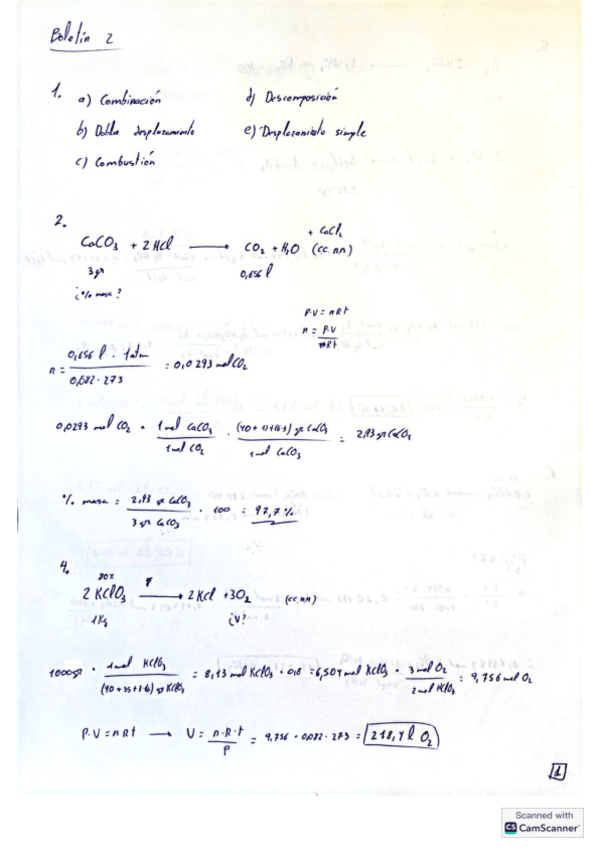 Boletín 2
1. a) Combinación d) Descomposición
b) Doble desplazamiento e) Desplazamiento simple
c) Combustión
2.
+ CaCl₂
CaCO₃ + 2 HCl ⟶ CO₂ + H₂O (cc.nn)
3 gr 0,656 l
¿% masa?
P·V = nRt
n = P·V / RT
n = 0,656 l · 1 atm / 0,082 · 273 = 0,0293 mol CO₂
0,0293 mol CO₂ · 1 mol CaCO₃ / 1 mol CO₂ · (40+12+16·3) gr CaCO₃ / 1 mol CaCO₃ = 2,93 gr CaCO₃
% masa = 2,93 gr CaCO₃ / 3 gr CaCO₃ · 100 = 97,7 %
4.
80%
2 KClO₃ ⟶ 2 KCl + 3O₂ (cc.nn)
1 Kg ¿V?
1000 gr · 1 mol KClO₃ / (40+35+3·16) gr KClO₃ = 8,13 mol KClO₃ · 0,8 = 6,504 mol KClO₃ · 3 mol O₂ / 2 mol KClO₃ = 9,756 mol O₂
P·V = nRt ⟶ V = n·R·t / P = 9,756 · 0,082 · 273 = 218,4 l O₂
1
Scanned with
CS CamScanner